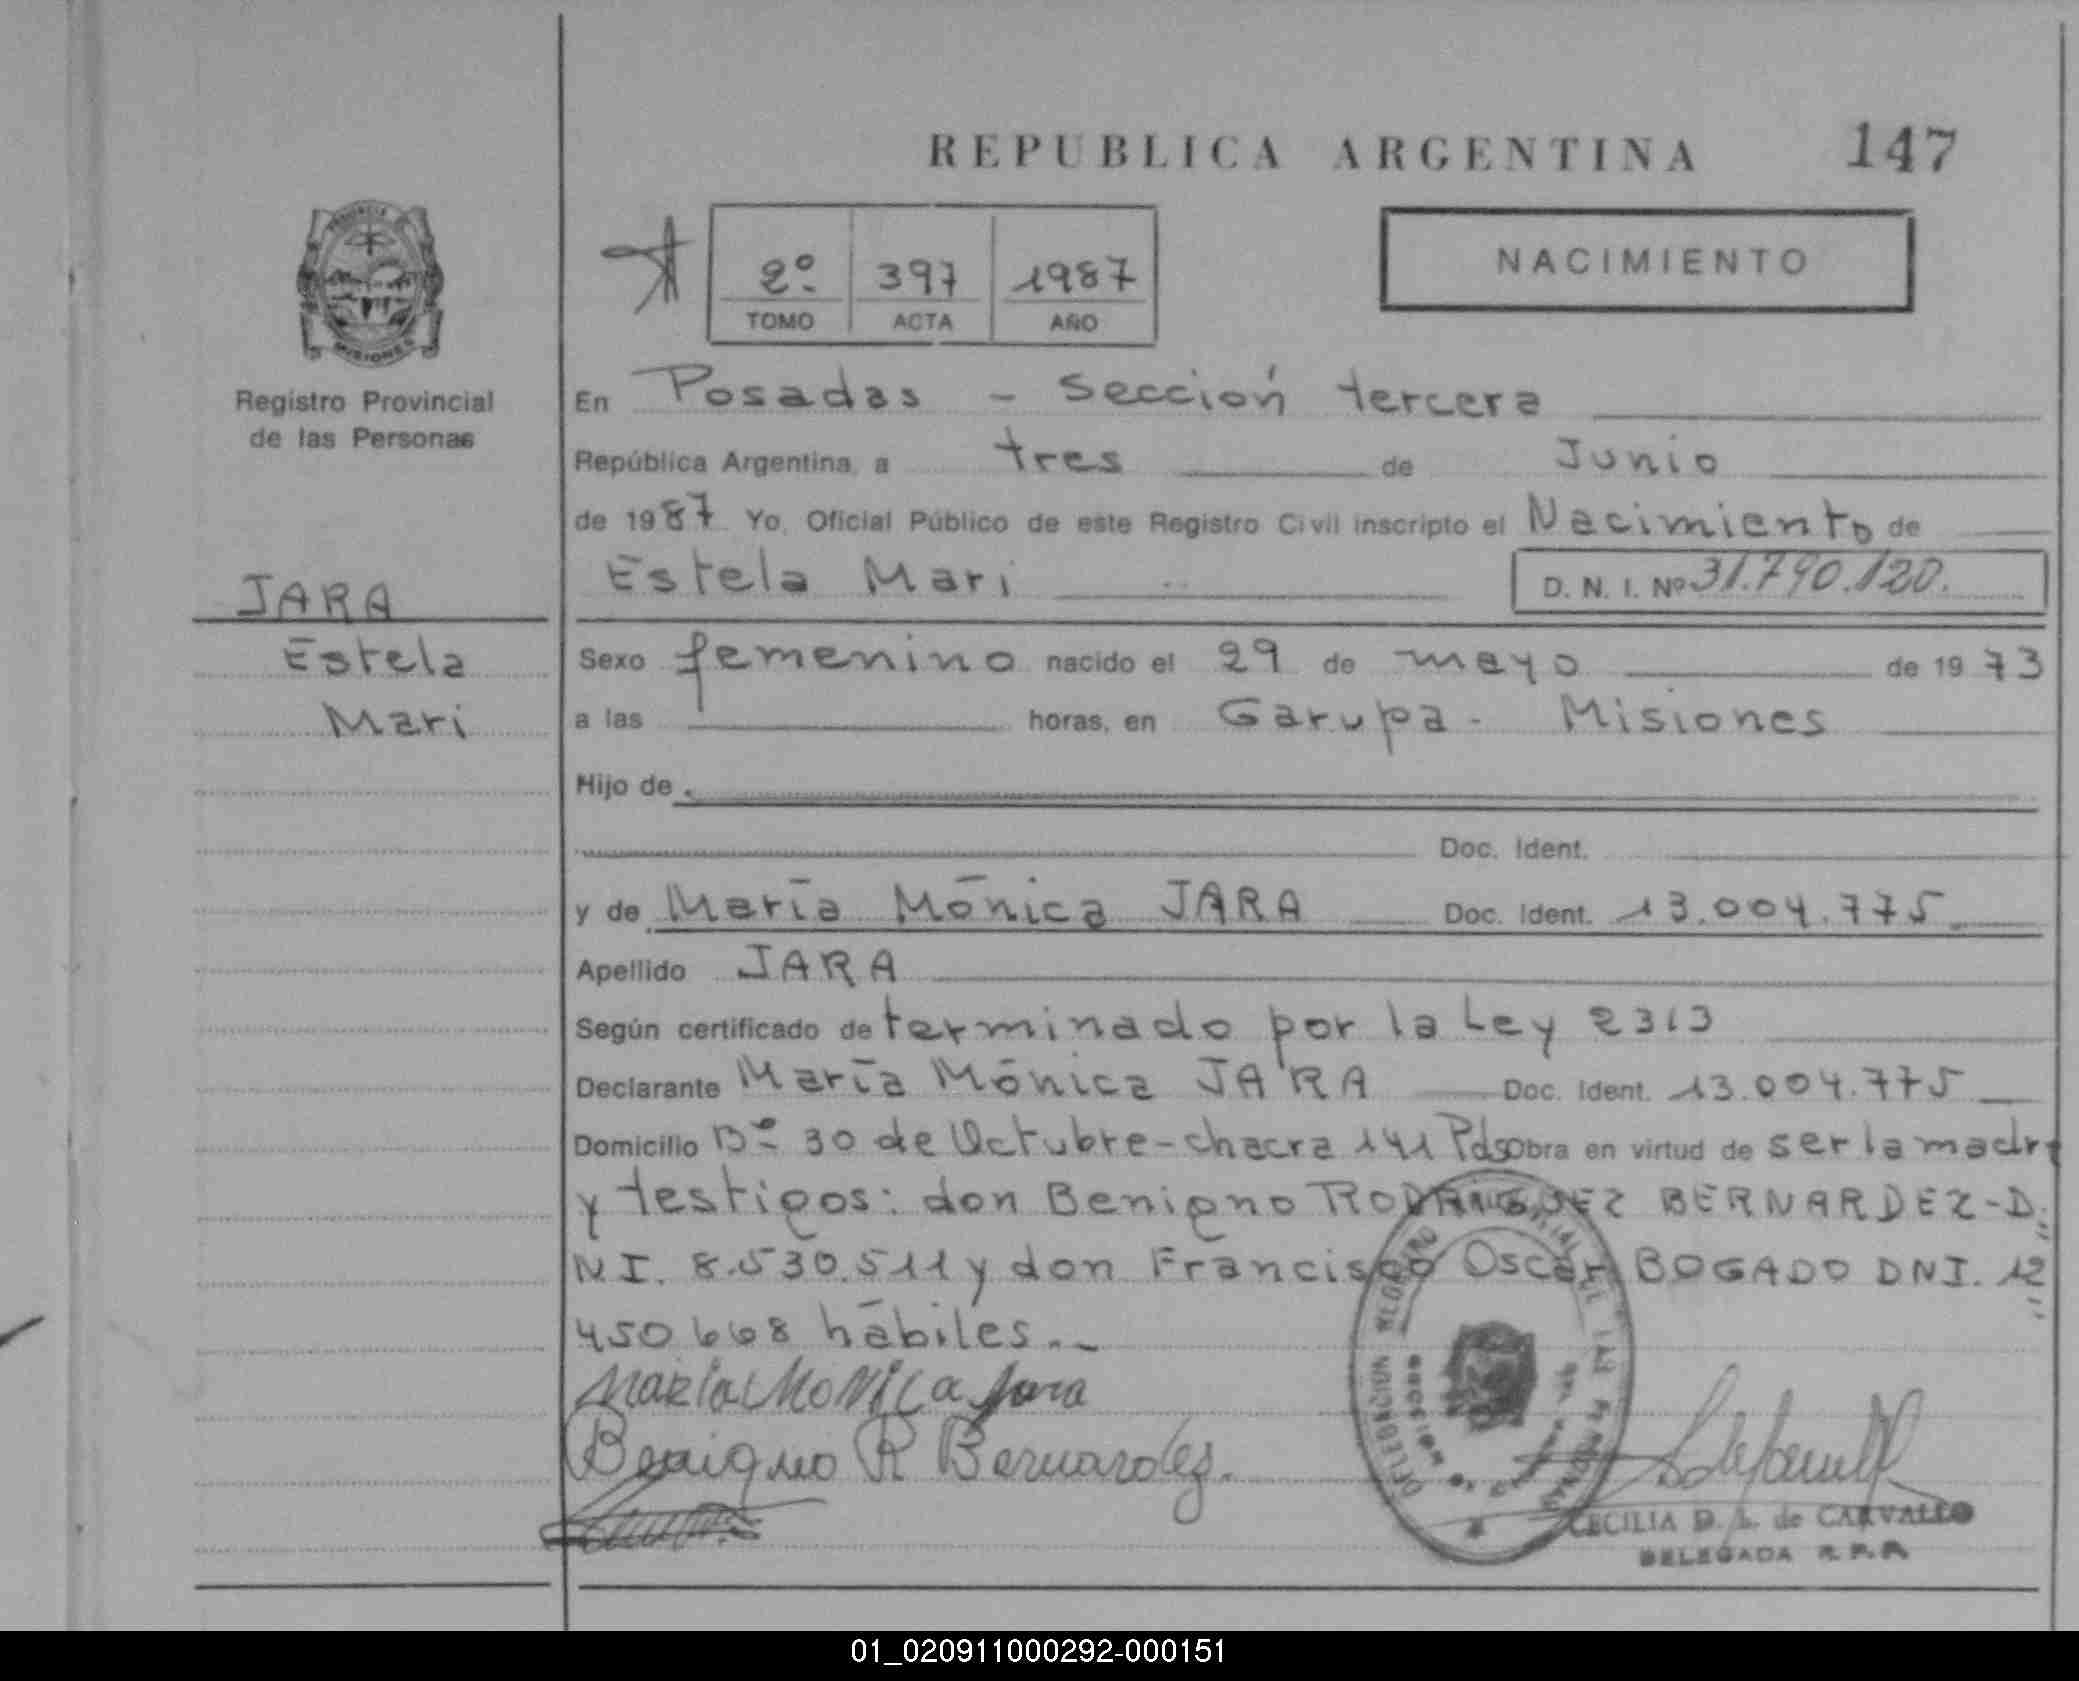 REPUBLICA ARGENTINA 147
PROVINCIA
MISIONES
Registro Provincial
de las Personas
2º 397 1987
TOMO ACTA AÑO
NACIMIENTO
En Posadas - Sección tercera
República Argentina, a tres de Junio
de 1987 Yo, Oficial Público de este Registro Civil inscripto el Nacimiento de
Estela Mari D. N. I. Nº 31.790.120.
JARA
Estela
Mari
Sexo femenino nacido el 29 de mayo de 1973
a las horas, en Garupa - Misiones
Hijo de
Doc. Ident.
y de María Mónica JARA Doc. Ident. 13.004.775
Apellido JARA
Según certificado de terminado por la Ley 2313
Declarante María Mónica JARA Doc. Ident. 13.004.775
Domicilio Bº 30 de Octubre - chacra 141 Pdas obra en virtud de ser la madre
y testigos: don Benigno RODRIGUEZ BERNARDEZ - D.
NI. 8.530.511 y don Francisco Oscar BOGADO DNI. 12
450.668 hábiles.-
María Monica Jara
Benigno R Bernardez.
CECILIA D. L. de CARVALLO
DELEGADA R.P.P.
01_020911000292-000151